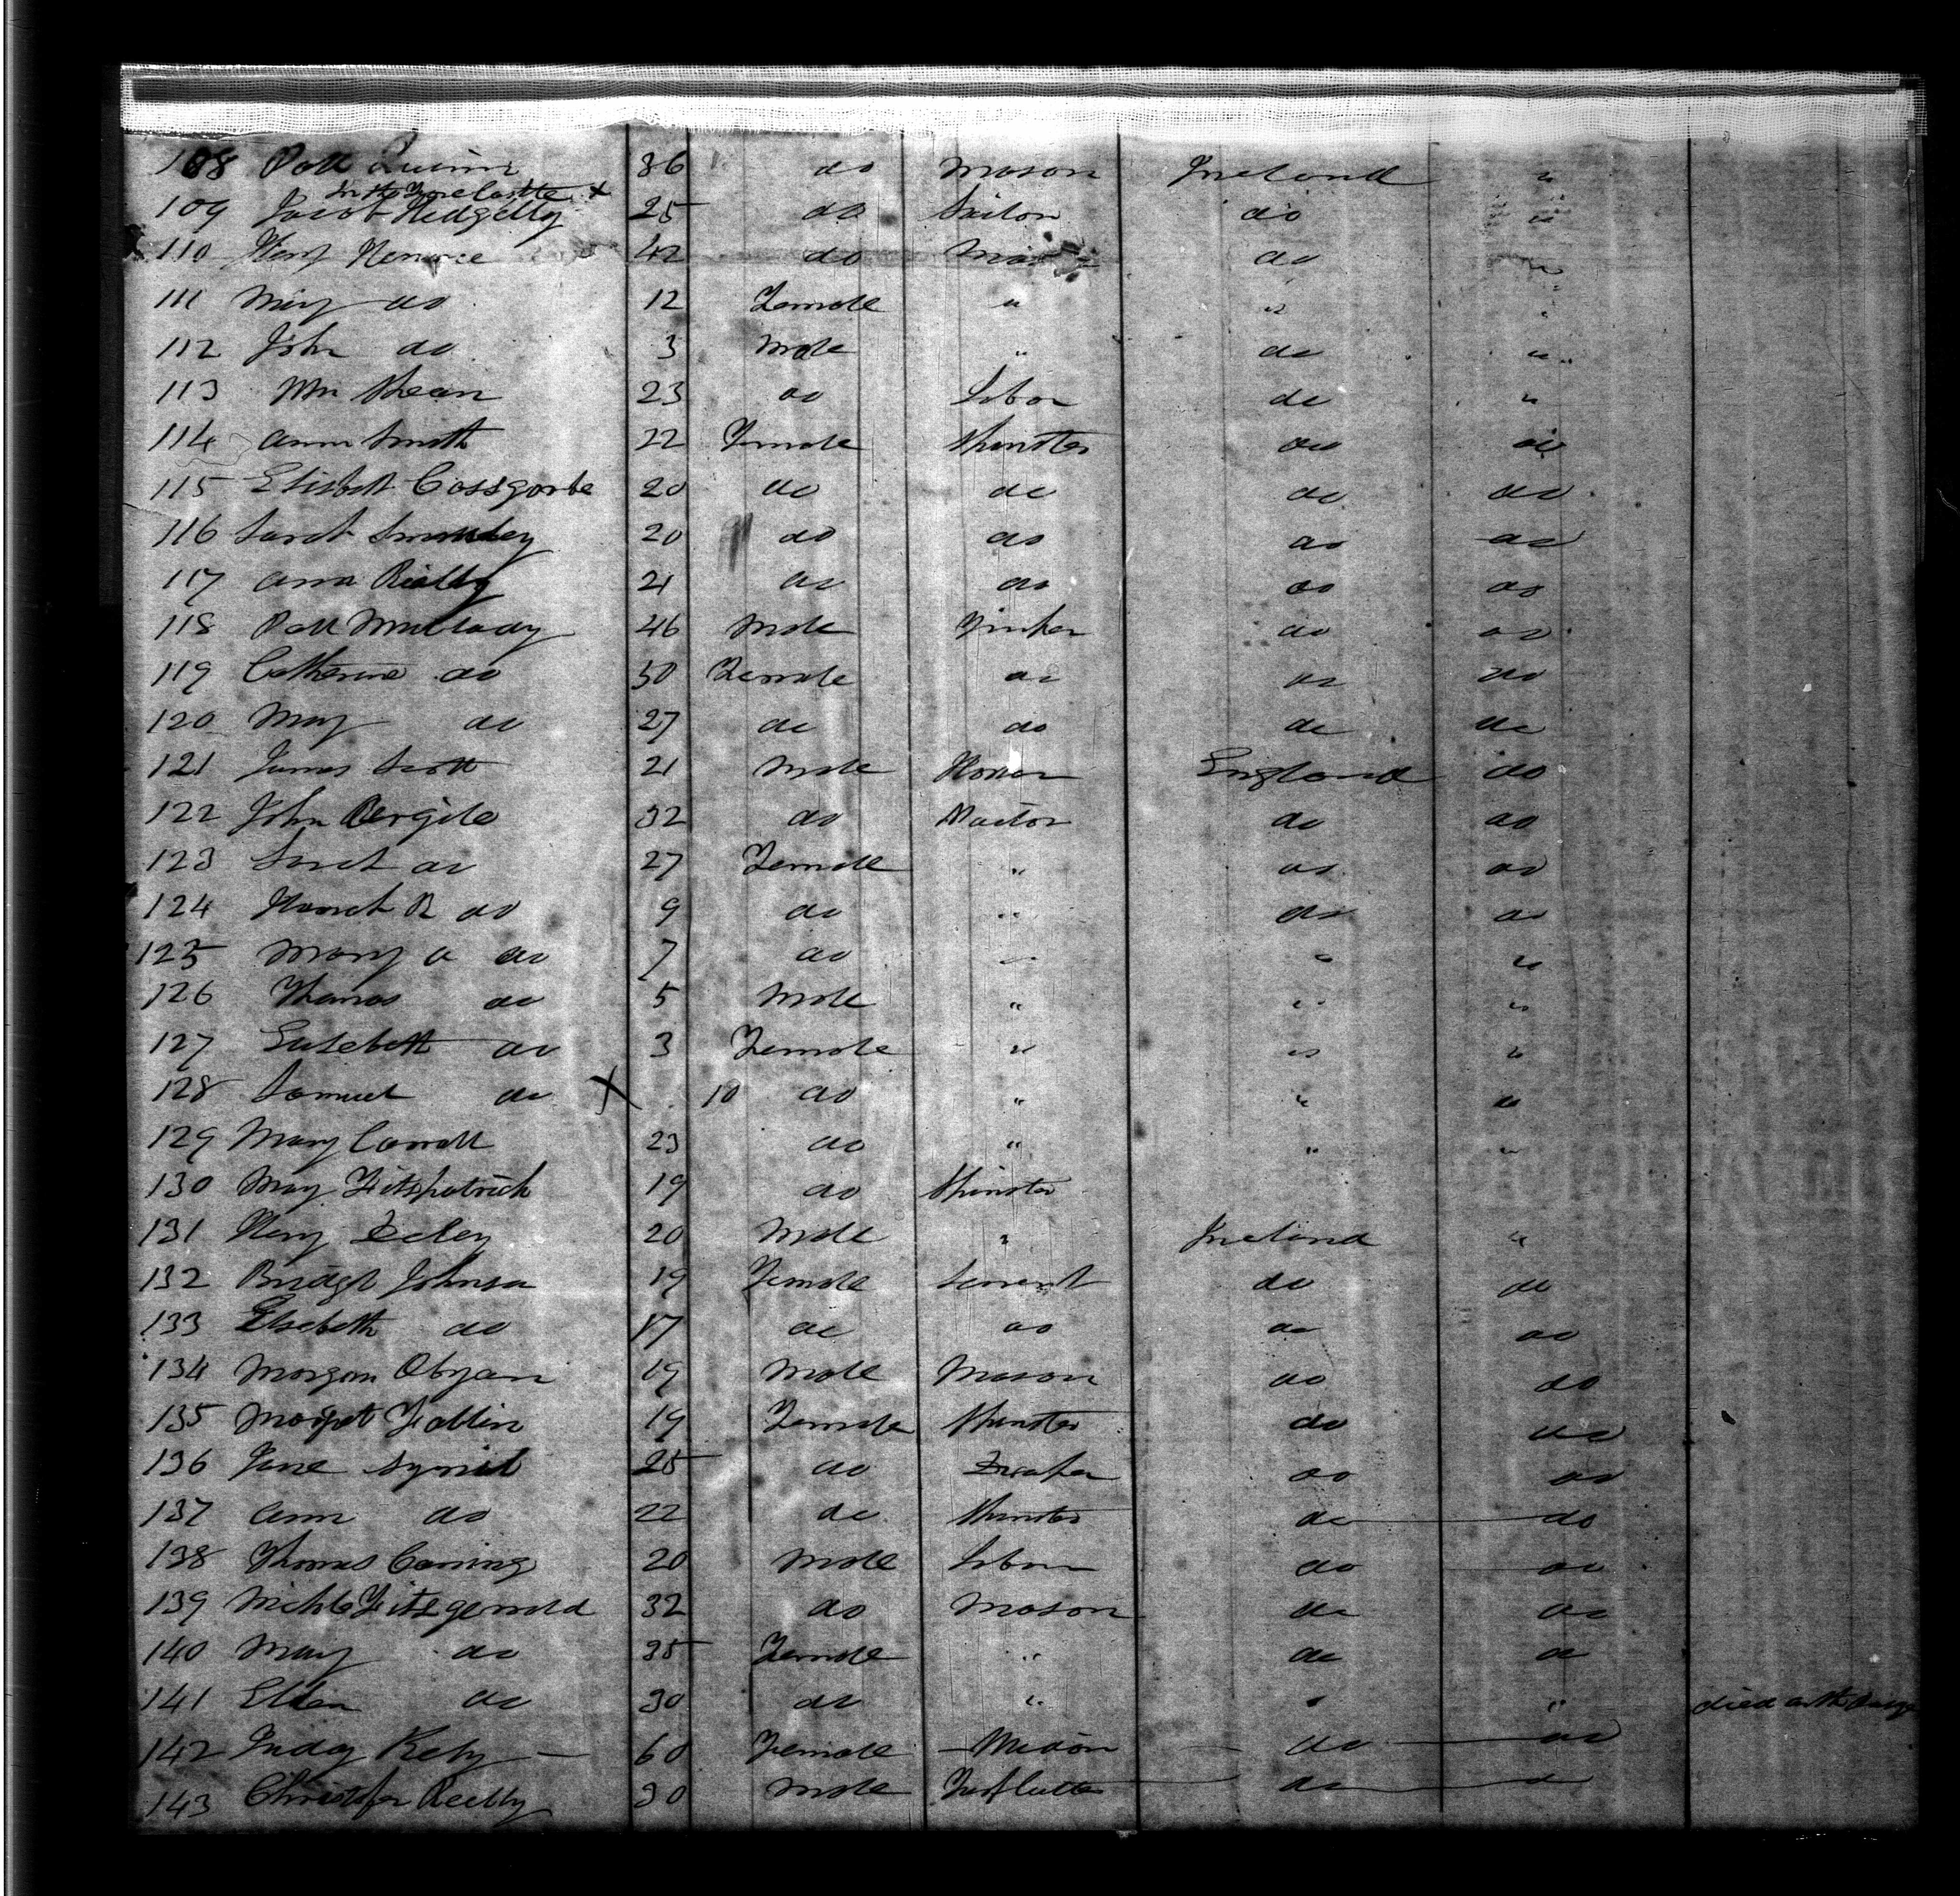 108 Patt Quinn 36 do Mason Ireland "
109 Jacob Hedgelly 25 do Sailor do "
110 Henry 42 do do "
111 Mary do 12 Female " " "
112 John do 3 Male " do "
113 Wm Shean 23 do Labor do "
114 Ann Smith 22 Female Spinster do do
115 Elisbett Cossgorbe 20 do do do do
116 Sarah 20 do do do do
117 Ann Rielly 21 do do do do
118 Patt Mullady 46 Male Tinker do do
119 Catherine do 30 Female do do do
120 Mary do 27 do do do do
121 James Scott 21 Male England do
122 John 32 do do do
123 Sarah do 27 Female " do do
124 Hanah R do 9 do " do do
125 Mary A do 7 do " " "
126 Thomas do 5 Male " " "
127 Elizebeth do 3 Female " " "
128 Samuel do X 10 do " " do
129 Mary Carroll 23 do " " "
130 Mary Fitzpatrick 19 do Spinster
131 Henry 20 Male " Ireland "
132 Bridget Johnson 19 Female Servent do do
133 Elsebeth do 17 do do do do
134 Morgan Obryan 19 Male Mason do do
135 Margret Toblin 19 Female Spinster do do
136 Jane 25 do do do
137 Ann do 22 do Spinster do do
138 Thomas Caning 20 Male Labour do do
139 Michl Fitzgerrald 32 do Mason do do
140 Mary do 35 Female " do do
141 Ellen do 30 do " " " died on the
142 Judy Kely 60 Female Widow do do
143 Christofer Reelly 30 Male do do